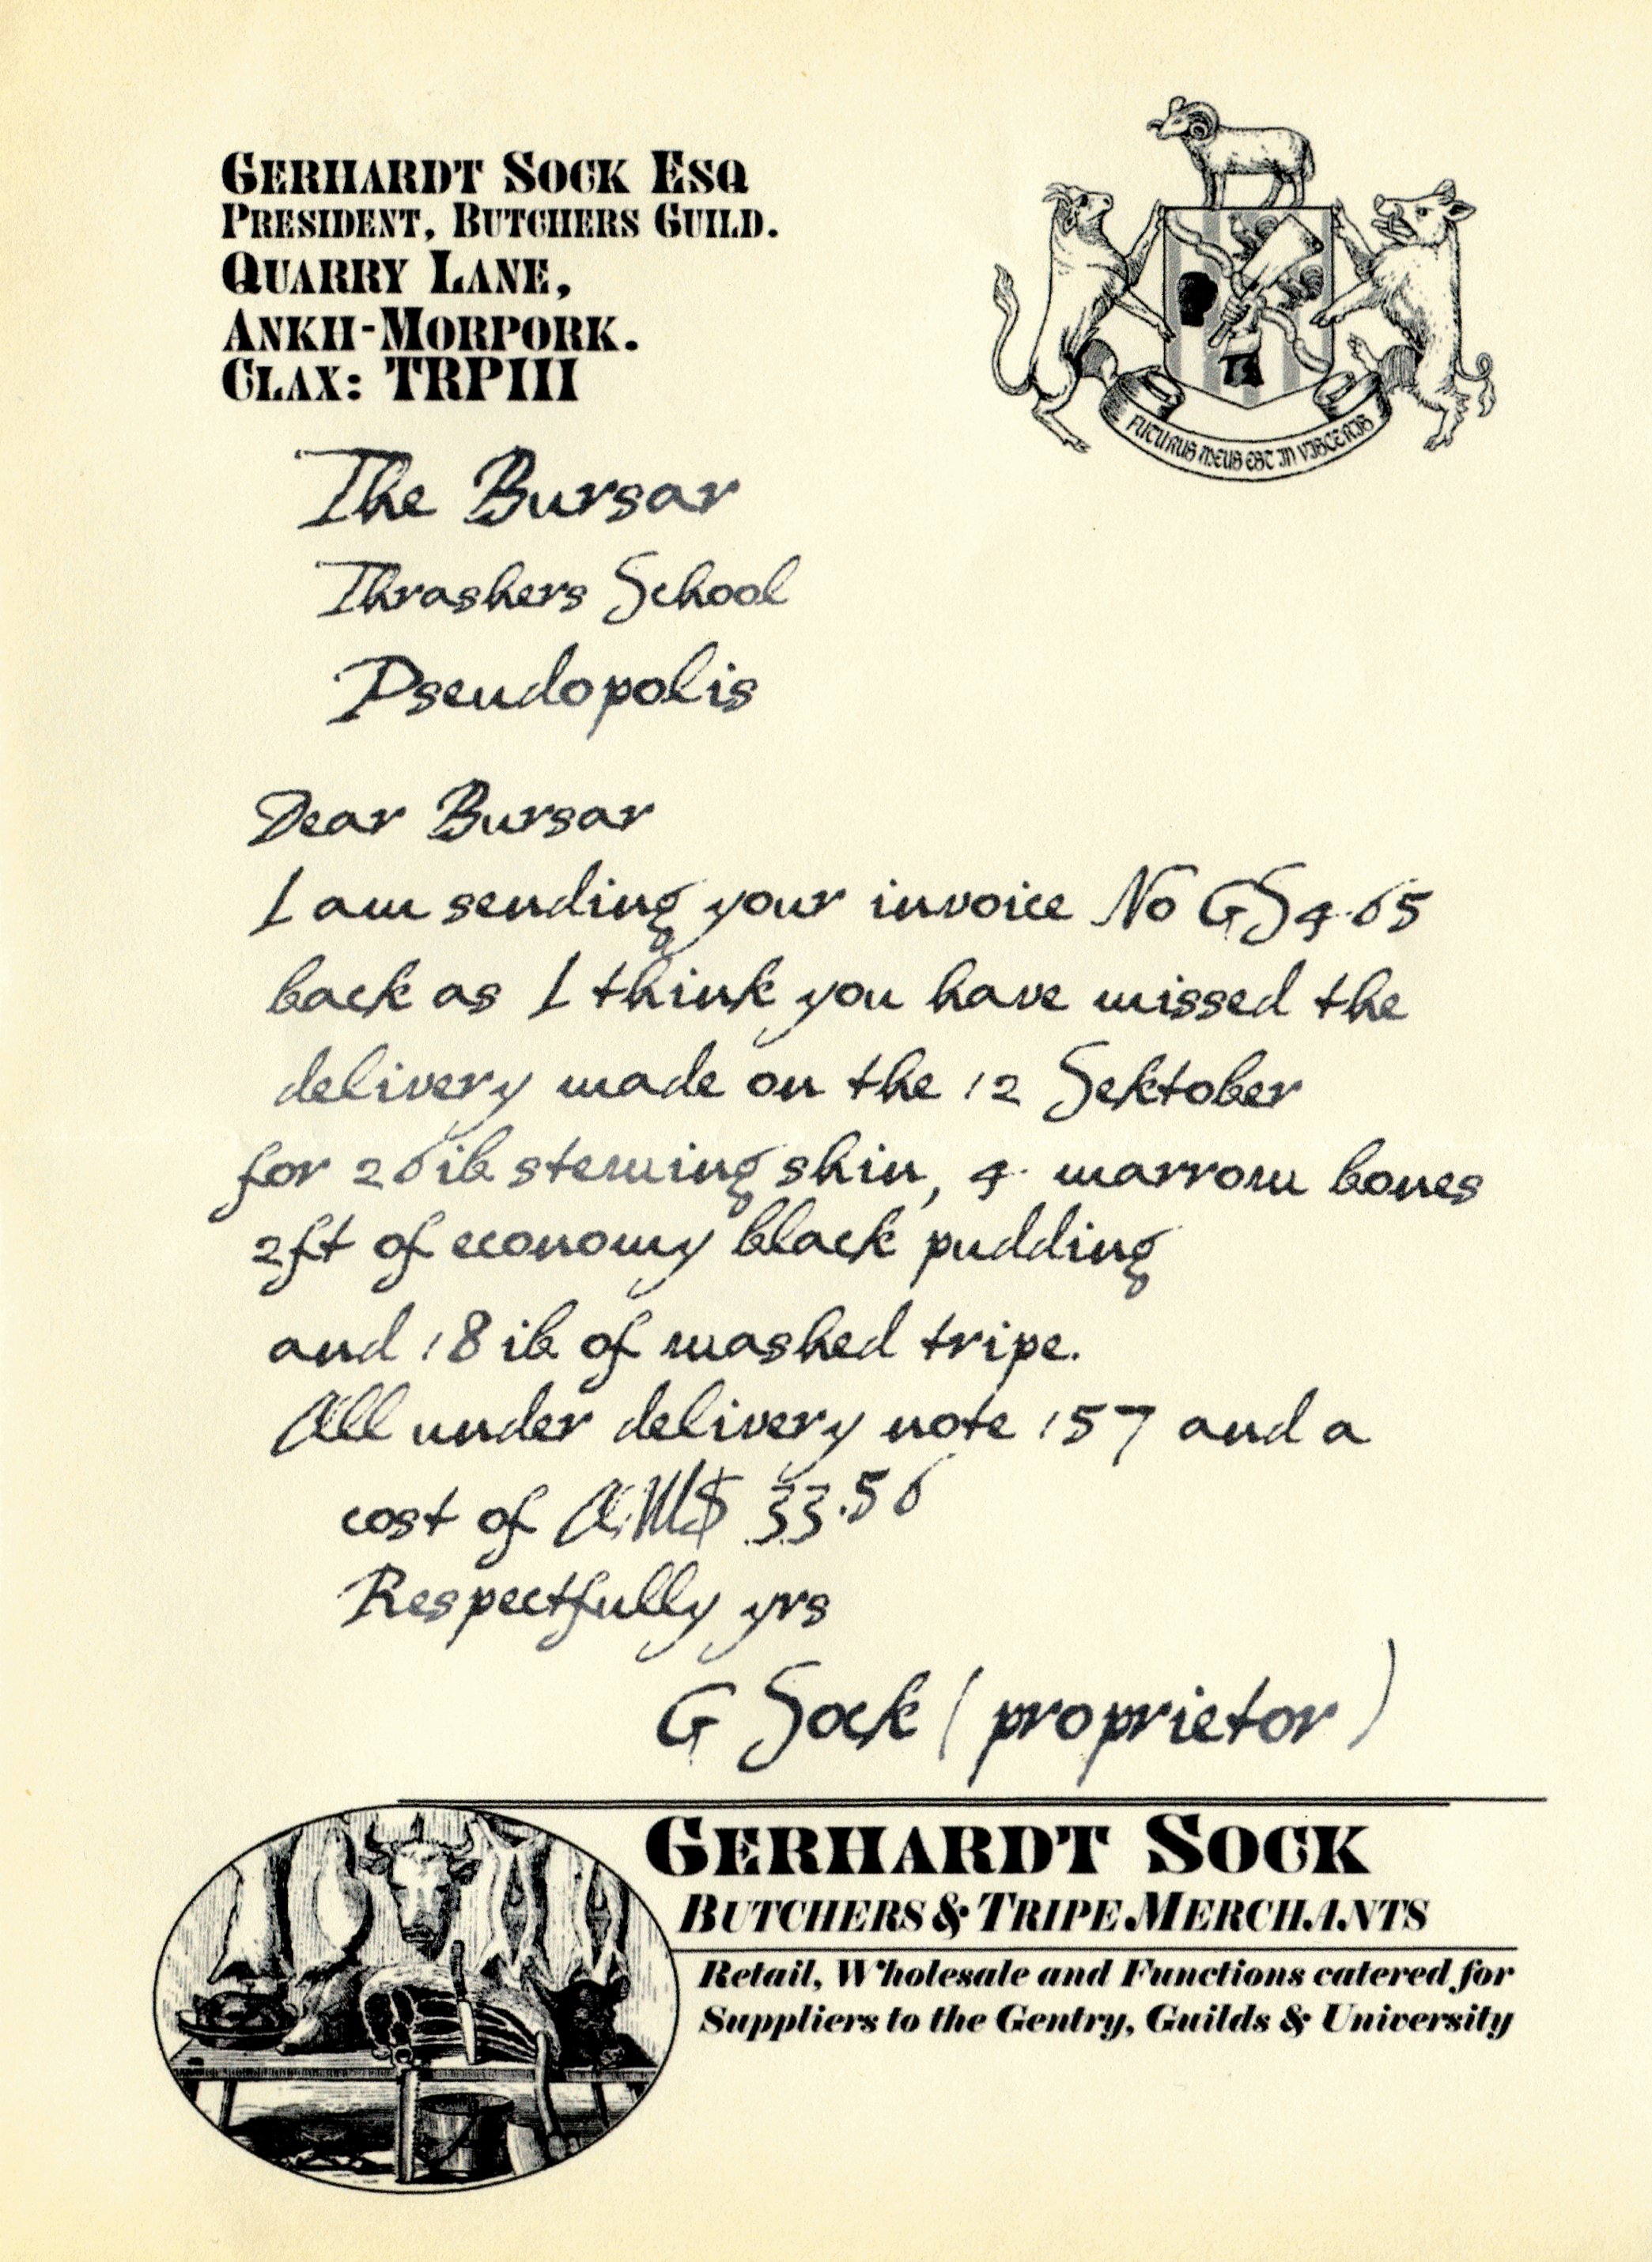 GERHARDT SOCK ESQ
PRESIDENT, BUTCHERS GUILD.
QUARRY LANE,
ANKH-MORPORK.
CLAX: TRPIII
FUTURUS MEUS EST IN VISCERIS
The Bursar
Thrashers School
Pseudopolis
Dear Bursar
I am sending your invoice No GS465
back as I think you have missed the
delivery made on the 12 Sektober
for 26 ib stewing shin, 4 marrow bones
2ft of economy black pudding
and 18 ib of washed tripe.
All under delivery note 157 and a
cost of A.M$ 33.56
Respectfully yrs
G Sock (proprietor)
GERHARDT SOCK
BUTCHERS & TRIPE MERCHANTS
Retail, Wholesale and Functions catered for
Suppliers to the Gentry, Guilds & University